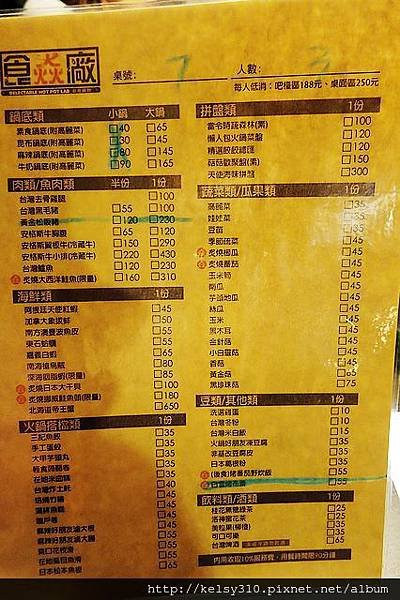 食焱廠
DELECTABLE HOT POT LAB
桌號: 7 人數: 3
每人低消：吧檯區188元、桌面區250元
鍋底類 小鍋 大鍋
素食鍋底(附高麗菜) 40 65
昆布鍋底(附高麗菜) 30 45
麻辣鍋底(附高麗菜) 80 145
牛奶鍋底(附高麗菜) 90 165
肉類/魚肉類 半份 1份
台灣去骨雞腿 100
台灣黑毛豬 55 100
黃金松阪豬 120 230
安格斯牛胸腹 65 120
安格斯翼板牛(冷藏牛) 150 290
安格斯牛小排(冷藏牛) 220 430
台灣鱸魚 120 230
炙燒大西洋鮭魚(限量) 160 310
海鮮類 1份
阿根廷天使紅蝦 45
加拿大象拔蚌 50
南方澳曼波魚皮 55
東石蛤蠣 65
嘉義白蝦 65
南海擋烏賊 80
深海胭脂蝦(限量) 85
炙燒日本大干貝 100
炙燒挪威鮭魚頭(限量) 180
北海道帝王蟹 650
火鍋搭檔類 1份
三記魚餃 35
手工蛋餃 35
大甲芋頭丸 35
輕食雞
35
在地米血糕 35
台灣炸土魠 45
培燒竹輪 45
蒲鉾魚龍 45
鱈戶卷 45
麻辣好朋友滷大腸 55
麻辣好朋友滷大腸 55
爽口花枝滑 55
在地虱目魚滑 65
日本松本魚板 65
拼盤類 1份
當令時蔬森林(素) 100
懶人包火鍋菜盤 120
精選餃餃轉匯 120
菇菇歡聚盤(素) 150
天使海味拼盤 300
蔬菜類/瓜果類 1份
高麗菜 35
娃娃菜 35
豆苗 35
季節蔬菜 45
炙燒櫛瓜 45
炙燒番茄 45
玉米筍 45
南瓜 45
芋頭地瓜 45
絲瓜 45
玉米 45
黑木耳 45
金針菇 45
小白靈菇 45
香菇 45
黃金菇 65
黑珍珠菇 75
豆類/其他類 1份
洗選雞蛋 10
台灣冬粉 10
台灣米白飯 15
火鍋好朋友凍豆腐 35
非基改豆腐皮 35
日本葛粉 35
(後食)豬番茄野炊飯 55
55
飲料類/酒類 1份
桂花蜜釀綠茶 25
洛神蜜花茶 25
美粒果(柳橙) 35
可口可樂 35
台灣啤酒 55
內用收取10%服務費，用餐時間限90分鐘
http://kelsy310.pixnet.net/album